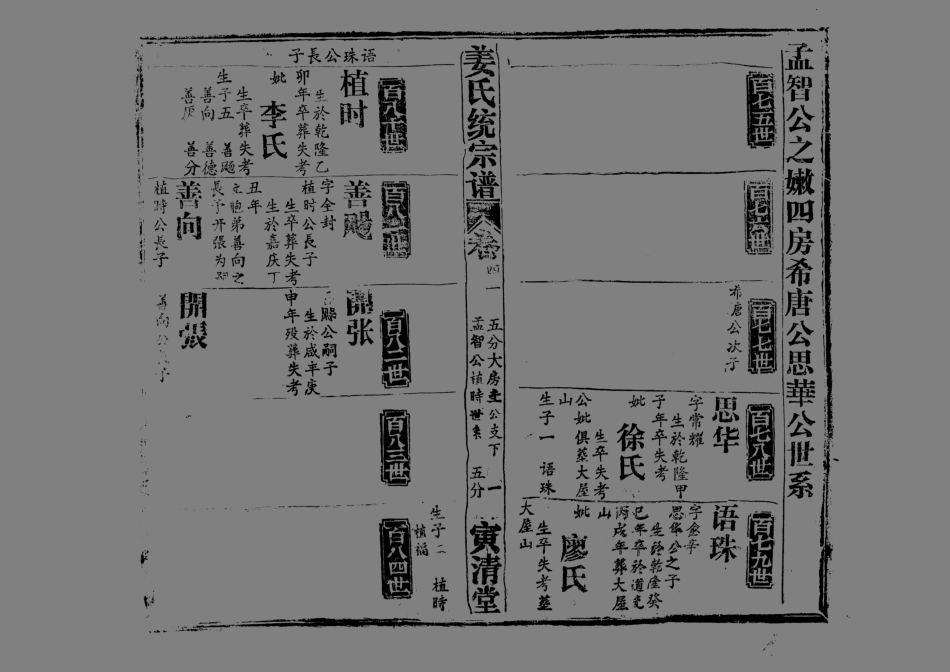 孟智公之嫩四房希唐公思華公世系
百七五世
百七六世
百七七世
希唐公次子
百七八世
思华
字常耀
生於乾隆甲
子年卒失考
妣
徐氏
生卒失考
公妣俱葬大屋
山
生子一 语珠
百七九世
语珠
字愈辛
思华公之子
生於乾隆癸
巳年卒於道光
丙戌年葬大屋
山
妣
廖氏
生卒失考葬
大屋山
姜氏统宗谱
卷
四
一
五分大房 公支下 一
孟智公植時世系 五分
寅清堂
生子二 植時
植福
百八十世
语珠公長子
植时
生於乾隆乙
卯年卒葬失考
妣
李氏
生卒葬失考
生子五
善向 善德
善分
善賜
字全封
植时公長子
生卒葬失考
生於嘉庆丁
丑年
胞弟善向之
長子开張为嗣
善向
植時公長子
百八二世
開张
公嗣子
生於咸丰庚
申年殁葬失考
開張
善向公長子
百八三世
百八四世